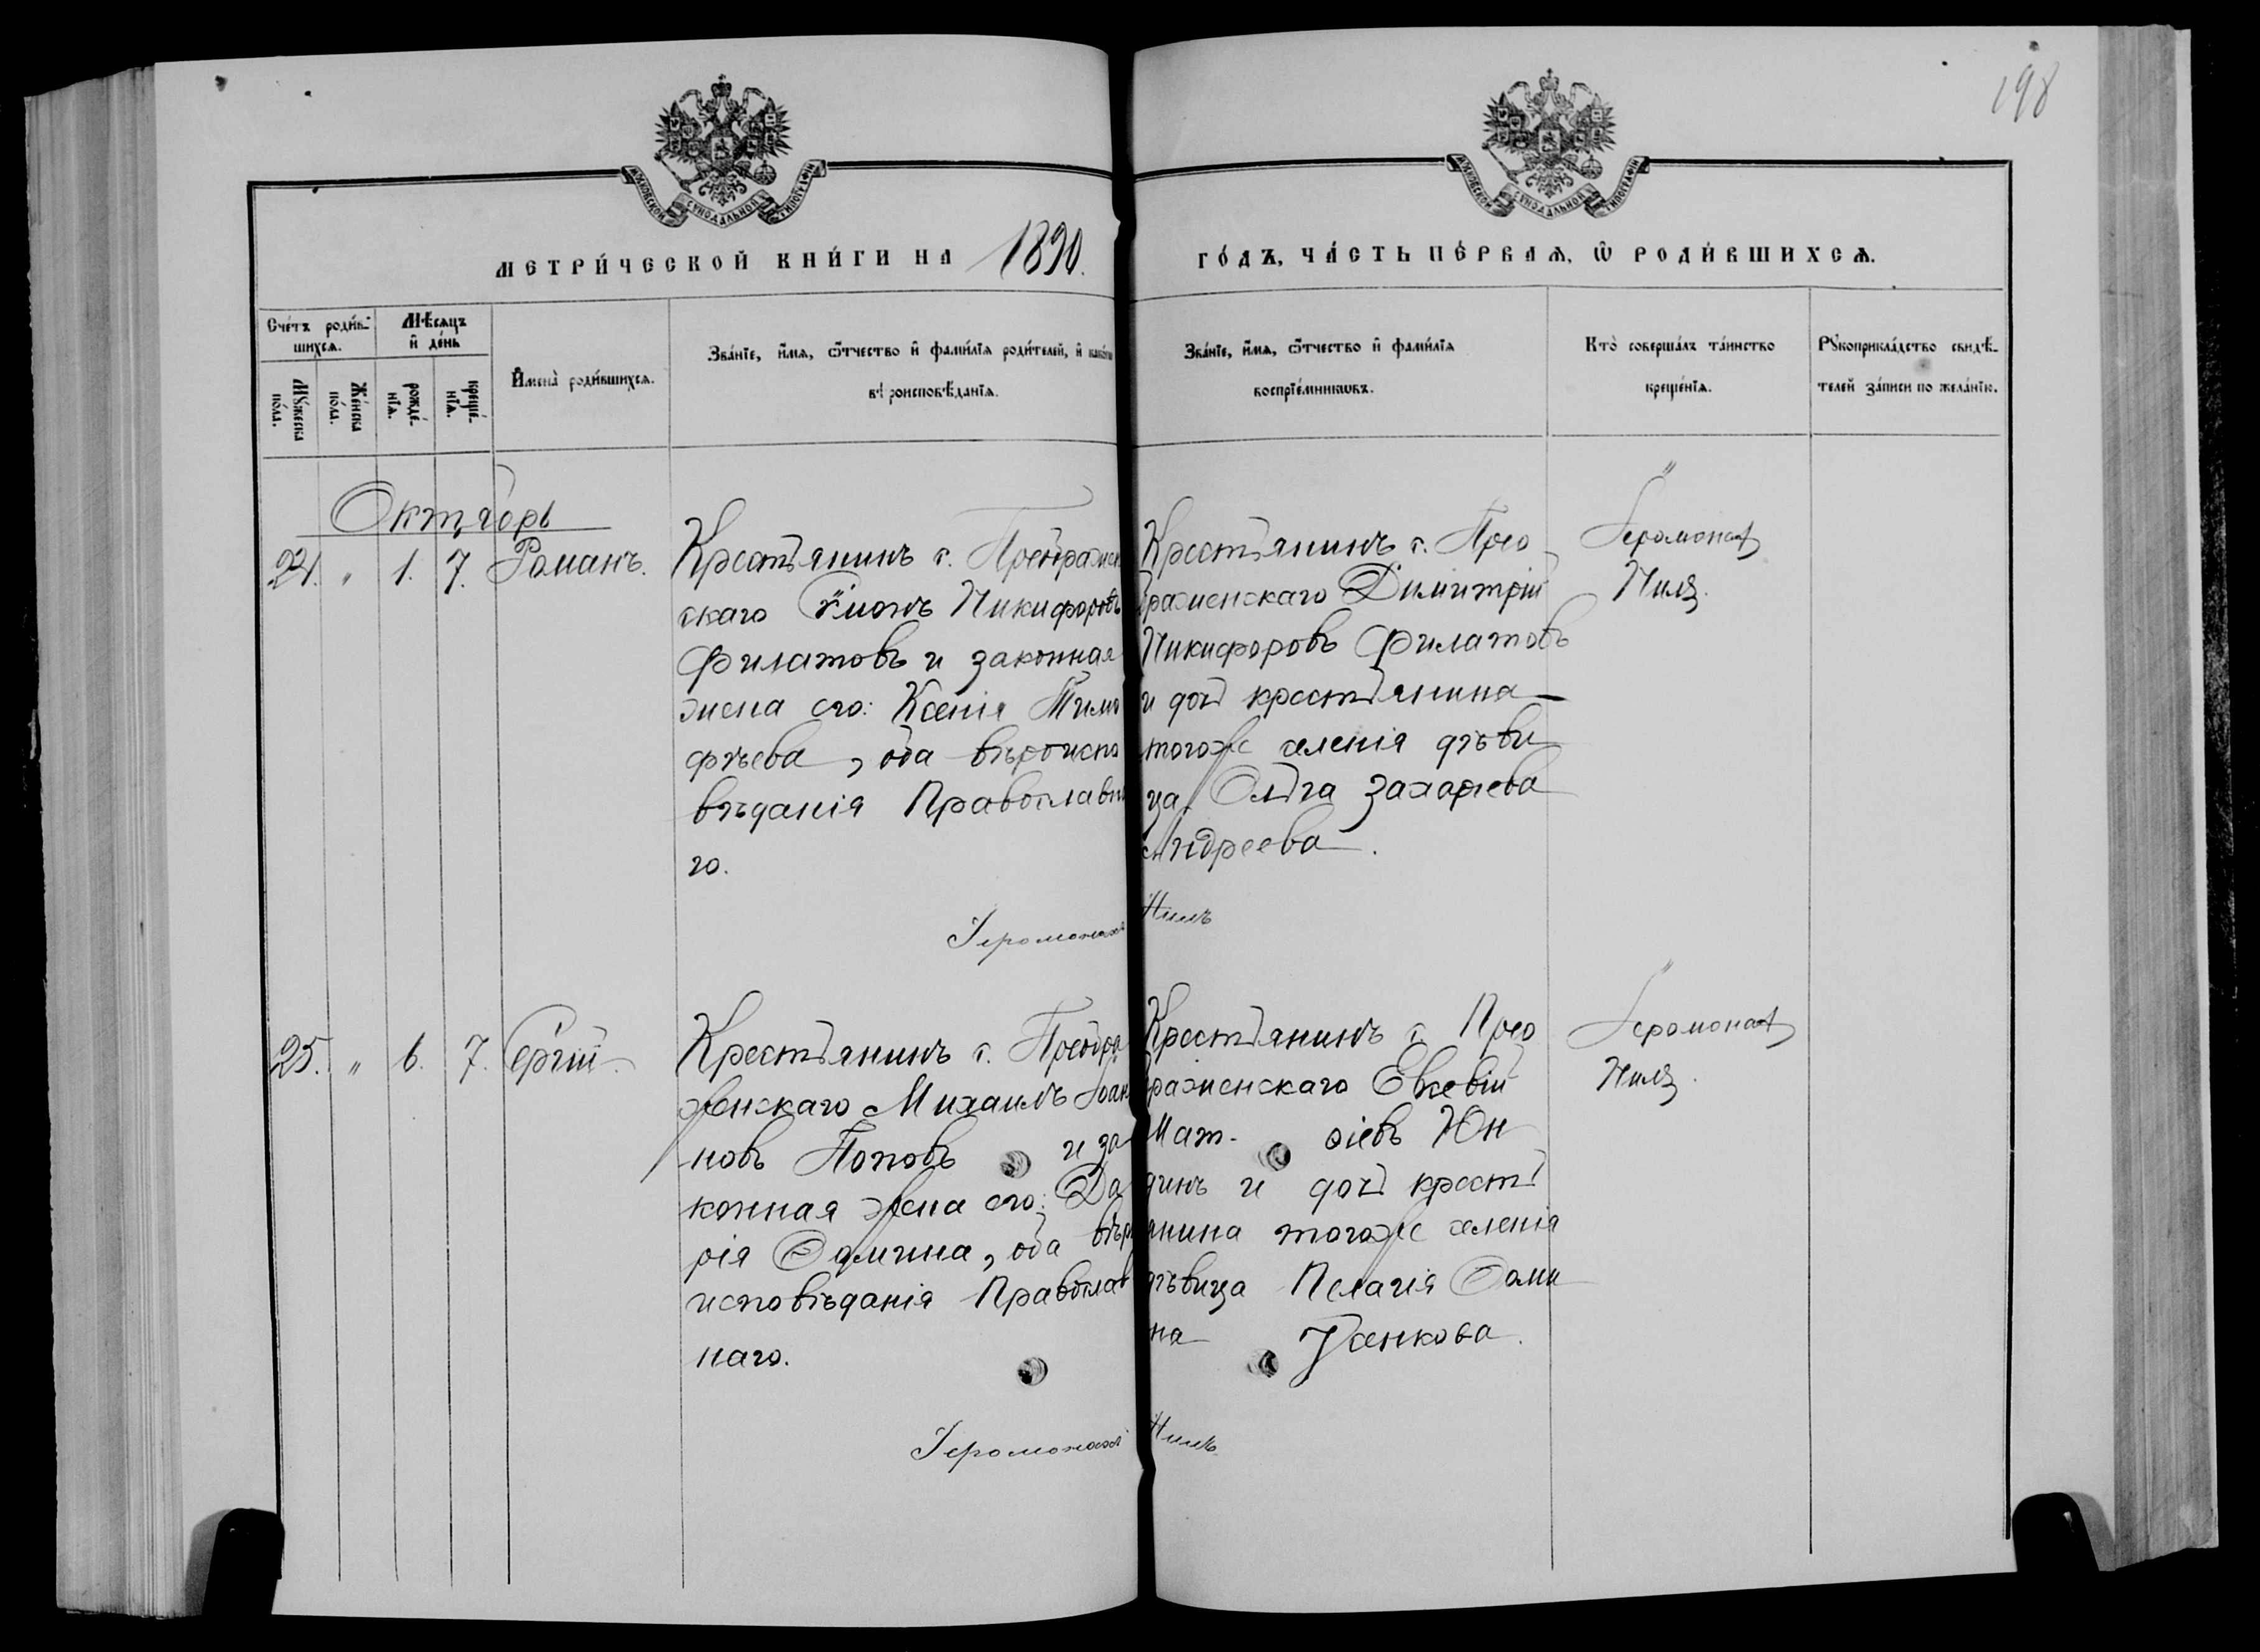 198
МОСКОВСКОЙ СѴНОДАЛЬНОЙ ТИПОГРАФІИ
МОСКОВСКОЙ СѴНОДАЛЬНОЙ ТИПОГРАФІИ
МЕТРИ́ЧЕСКОЙ КНИ́ГИ НА 1890.
ГО́ДЪ, ЧА́СТЬ ПЕ́РВАѦ, Ѡ҆ РОДИ́ВШИХСѦ.
Сче́тъ роди́в-
шихсѧ.
Мꙋ́жеска
по́ла.
Же́нска
по́ла.
Мѣ́сѧцъ
и҆ де́нь
рожде́-
нїѧ.
креще́-
нїѧ.
И҆мена̀ роди́вшихсѧ.
Зва́нїе, и҆́мѧ, ѻ҆́тчество и҆ фами́лїѧ роди́телей, и҆ како́гѡ
вѣроисповѣ́данїѧ.
Зва́нїе, и҆́мѧ, ѻ҆́тчество и҆ фами́лїѧ
воспрїе́мникѡвъ.
Кто̀ соверша́лъ та́инство
креще́нїѧ.
Рꙋкоприкла́дство свидѣ́-
телей за́писи по жела́нїю.
Октябрь
24. " 1. 7. Романъ.
Крестьянинъ с. Преображен
скаго Сімонъ Никифоровъ
Филатовъ и законная
жена его: Ксенія Тимо
феѣва, оба вѣроиспо
вѣданія Православна
го.
Крестьянинъ с. Прео
браженскаго Димитрій
Никифоровъ Филатовъ
и дочь крестьянина
тогоже селенія дѣви
ца Ольга Захарьева
Андреева.
Іеромонахъ
Нилъ.
Іеромонахъ Нилъ
25. " 6. 7. Сергій.
Крестьянинъ с. Преобра
женскаго Михаилъ Іоан
новъ Поповъ и за
конная жена его: Да
рія Ѳомина, оба вѣро
исповѣданія Православ
наго.
Крестьянинъ с. Прео
браженскаго Евсевій
Мат- ѳіевъ Юн
динъ и дочь кресть
янина тогоже селенія
дѣвица Пелагія Ѳоми
на Усенкова.
Іеромонахъ
Нилъ.
Іеромонахъ Нилъ